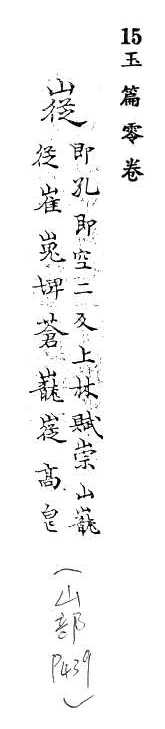 15玉篇零卷
嵸
即孔即空二反上林賦崇山巃
從崔嵬埤蒼巃嵸高皃
(山部P439)